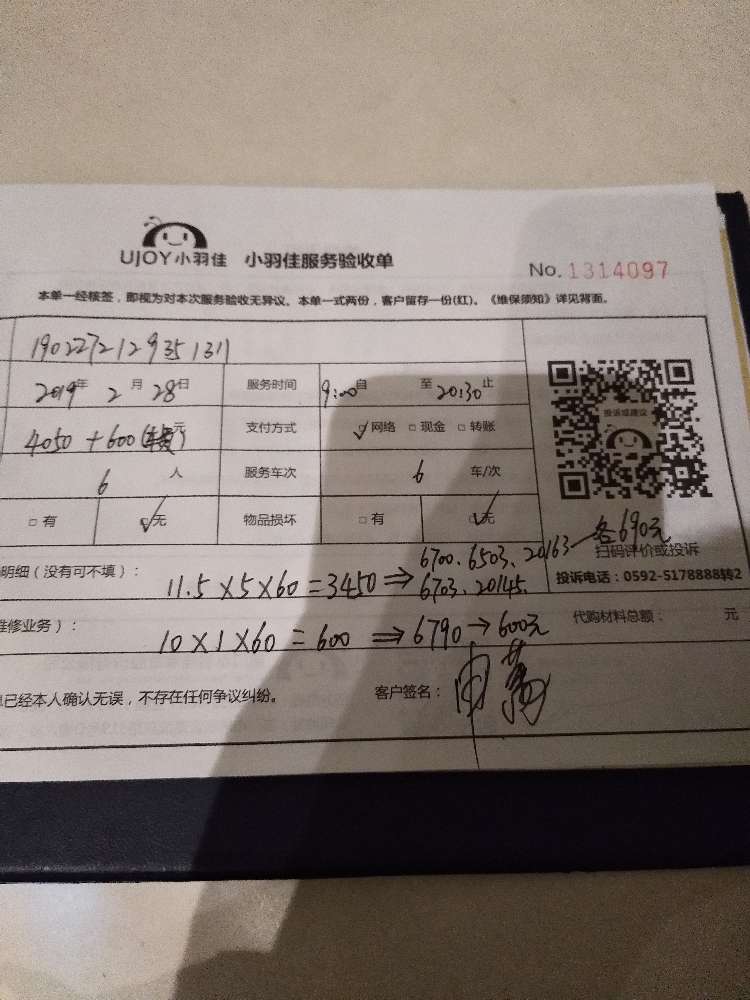 UJOY小羽佳 小羽佳服务验收单
No.1314097
本单一经核签，即视为对本次服务验收无异议。本单一式两份，客户留存一份(红)。《维保须知》详见背面。
1902272129351311
2019年 2月 28日 服务时间 9:00自 至 20:30止
投诉或建议
4050+600(车费)元 支付方式 ☑网络 □现金 □转账
6人 服务车次 6 车/次
□有 ☑无 物品损坏 □有 ☑无
6700、6503、20163 各690元
扫码评价或投诉
明细（没有可不填）： 11.5×5×60=3450⇒ 6703、20145、
投诉电话：0592-5178888转2
维修业务）： 10×1×60=600 ⇒6790→600元 代购材料总额： 元
已经本人确认无误，不存在任何争议纠纷。 客户签名：